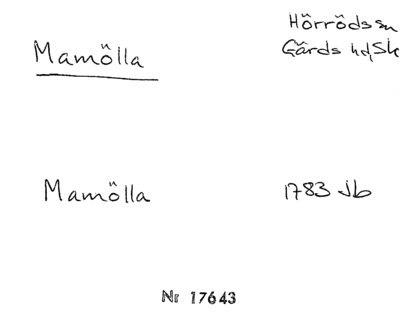 Mamölla
Hörröds sn
Gärds hd, Sk
Mamölla 1783 Jb
Nr 17643